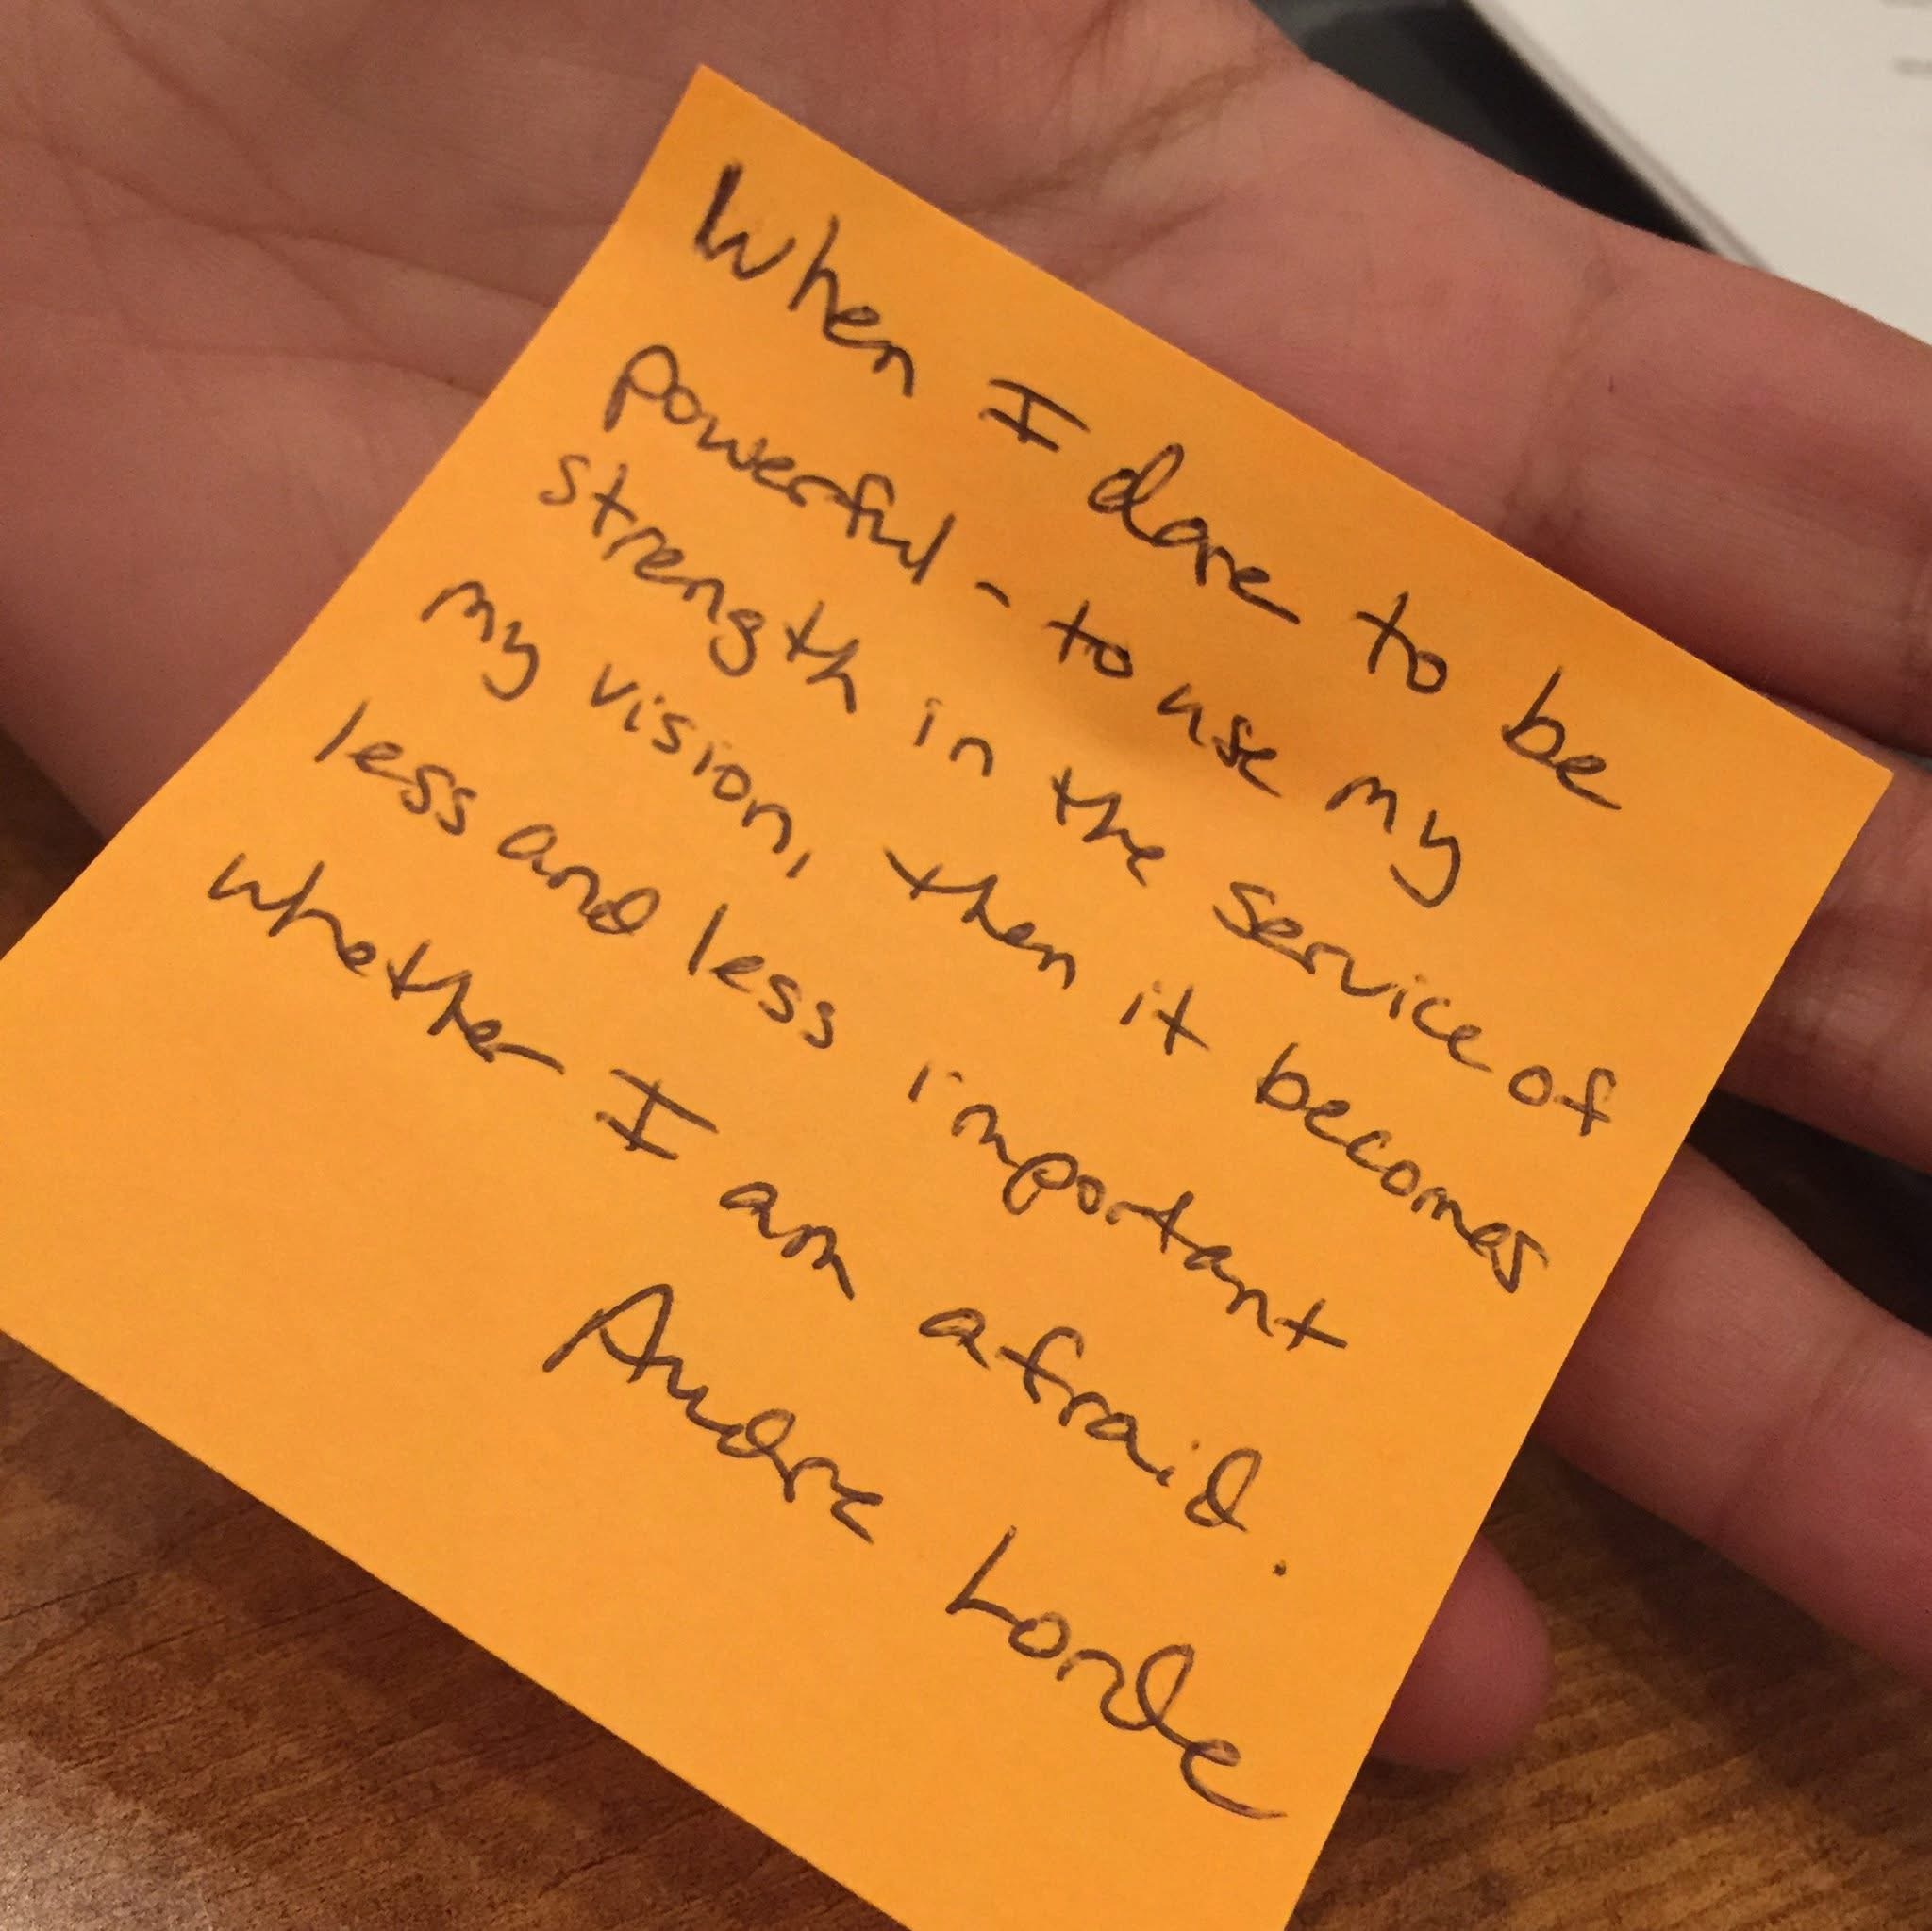 When I dare to be
powerful - to use my
strength in the service of
my vision, then it becomes
less and less important
whether I am afraid.
Audre Lorde